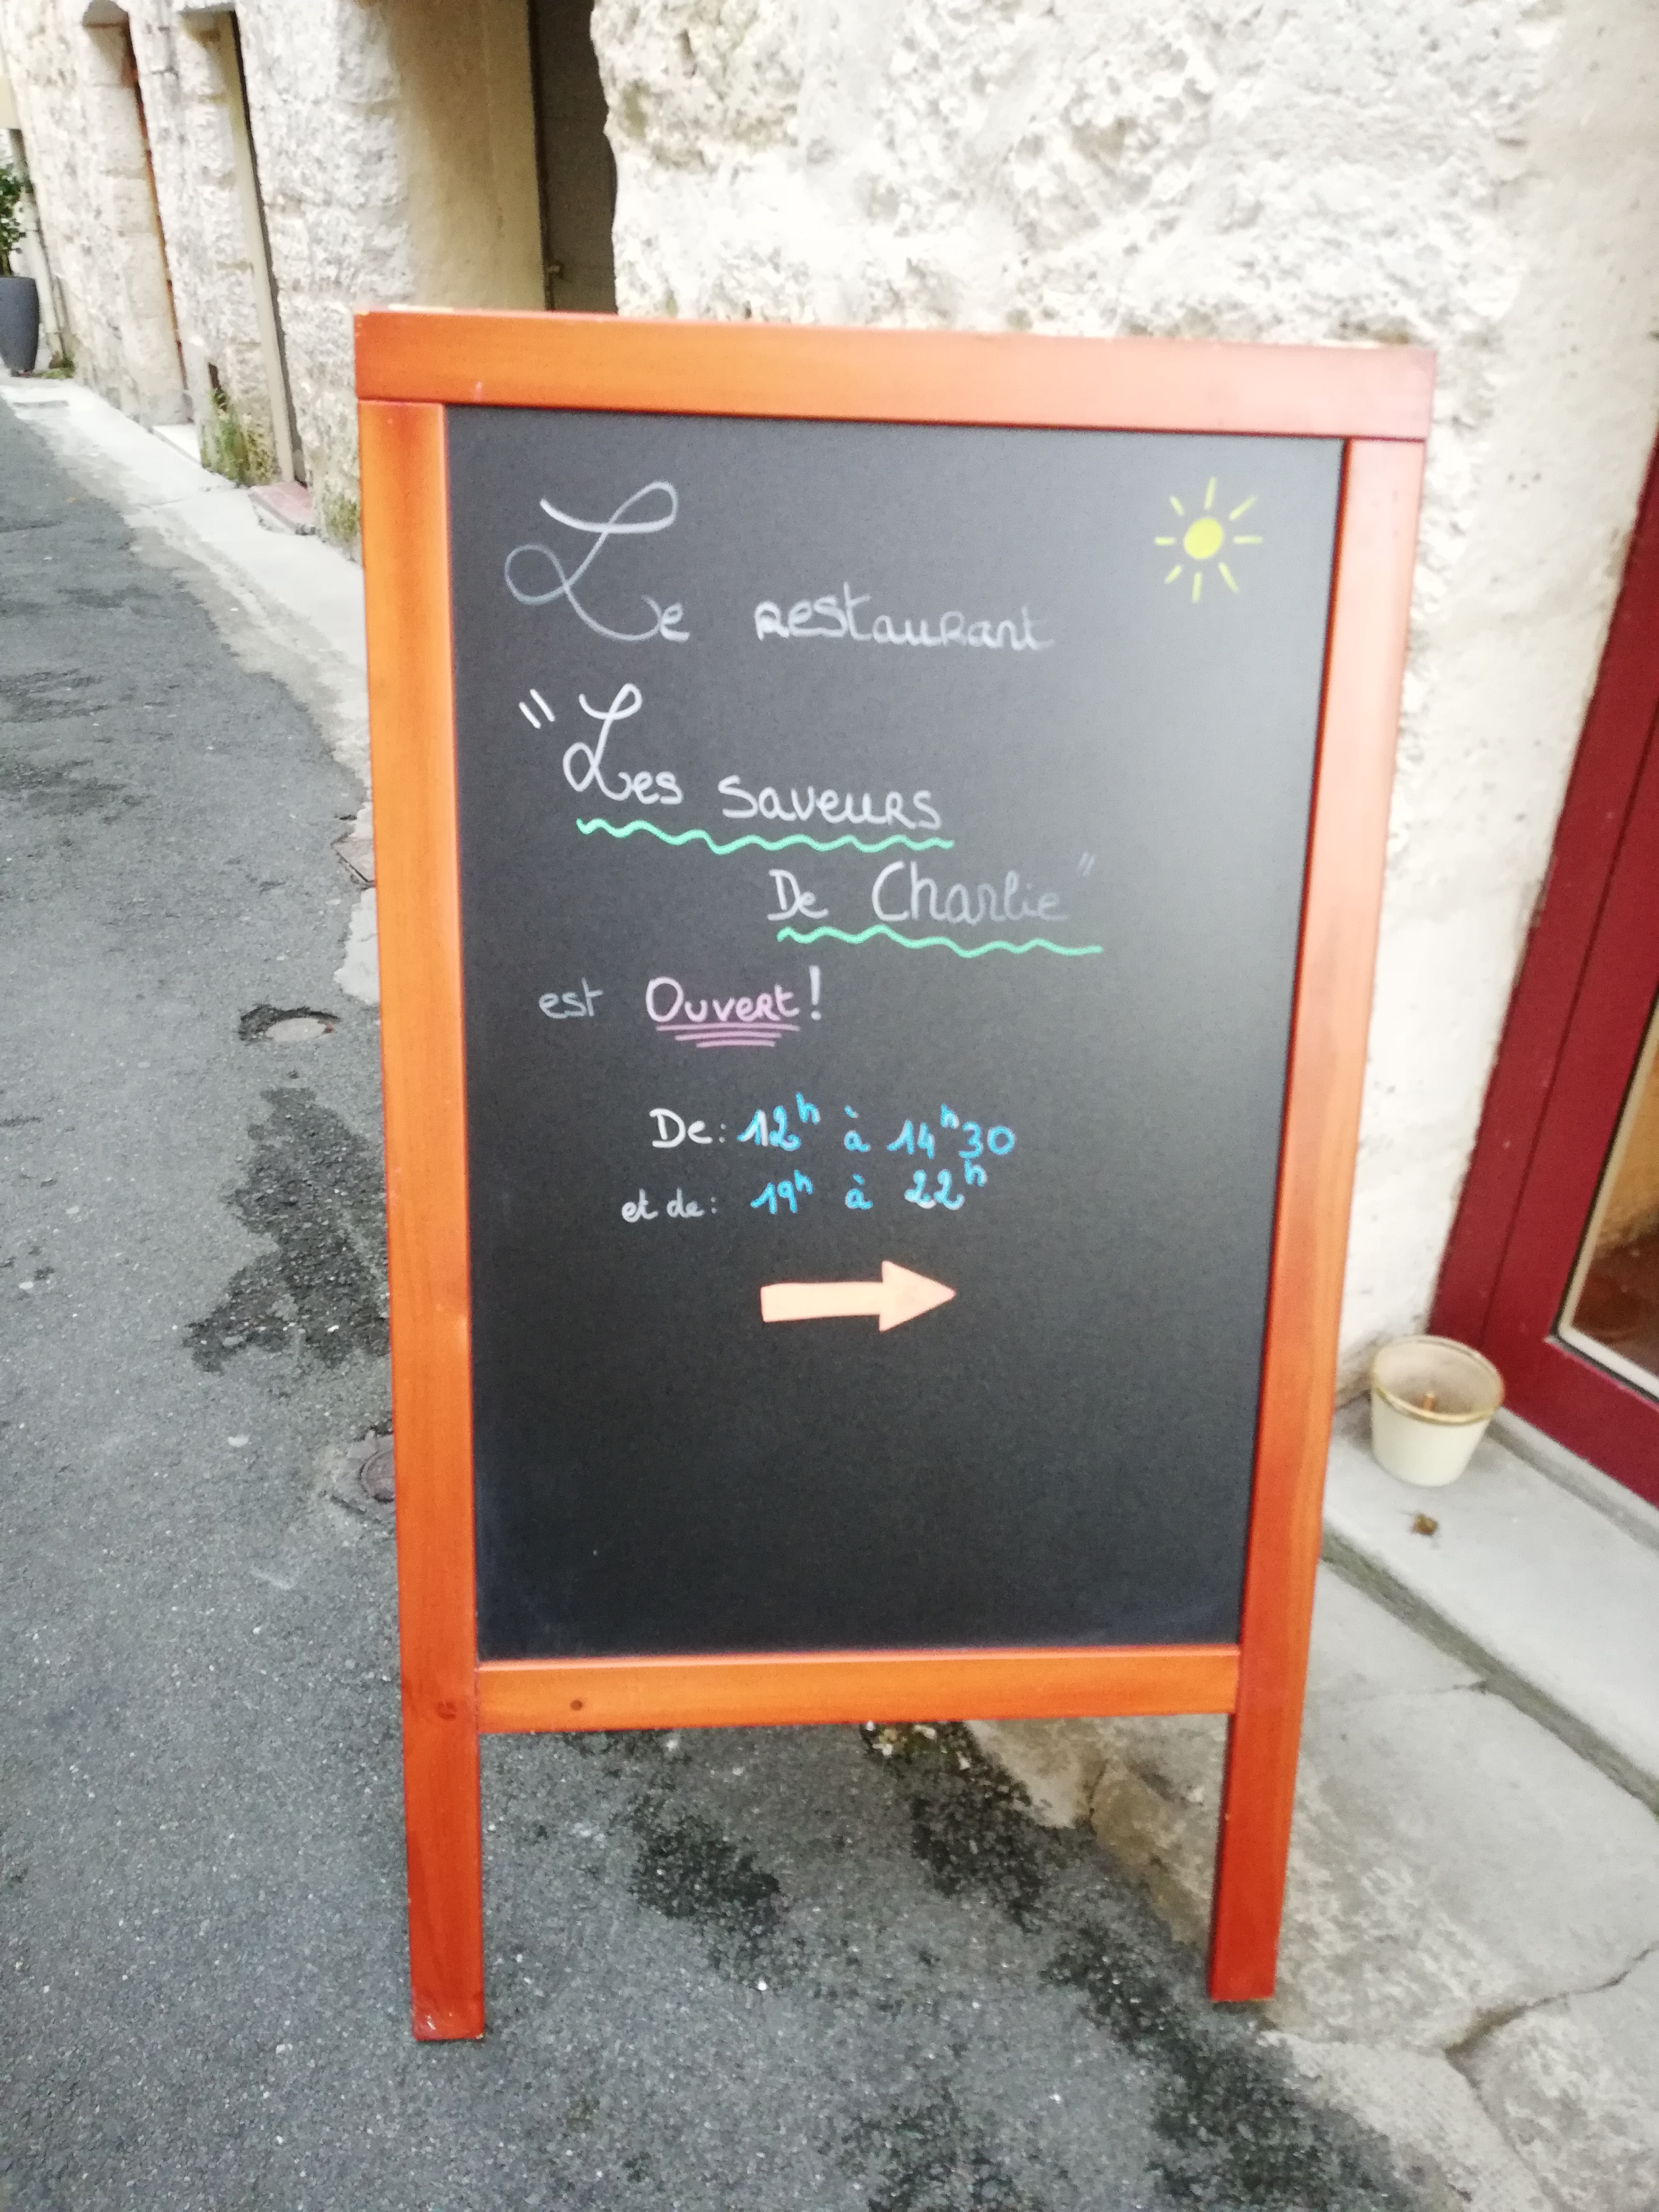 Le restaurant
"Les saveurs
De Charlie"
est Ouvert!
De: 12h à 14h30
et de: 19h à 22h